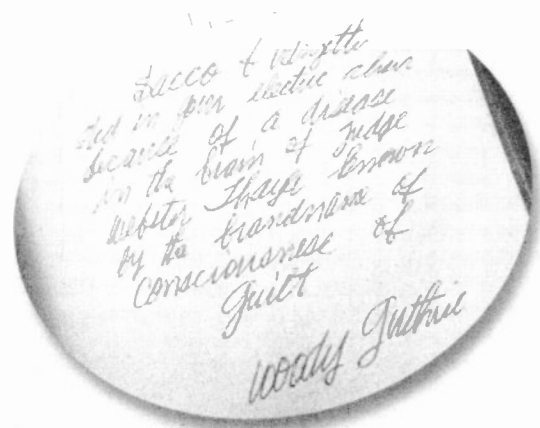 Sacco & Vanzetti
died in your electric chair
because of a disease
in the brain of Judge
Webster Thaye known
by the brandname of
Consciousnese of
Guilt
Woody Guthrie